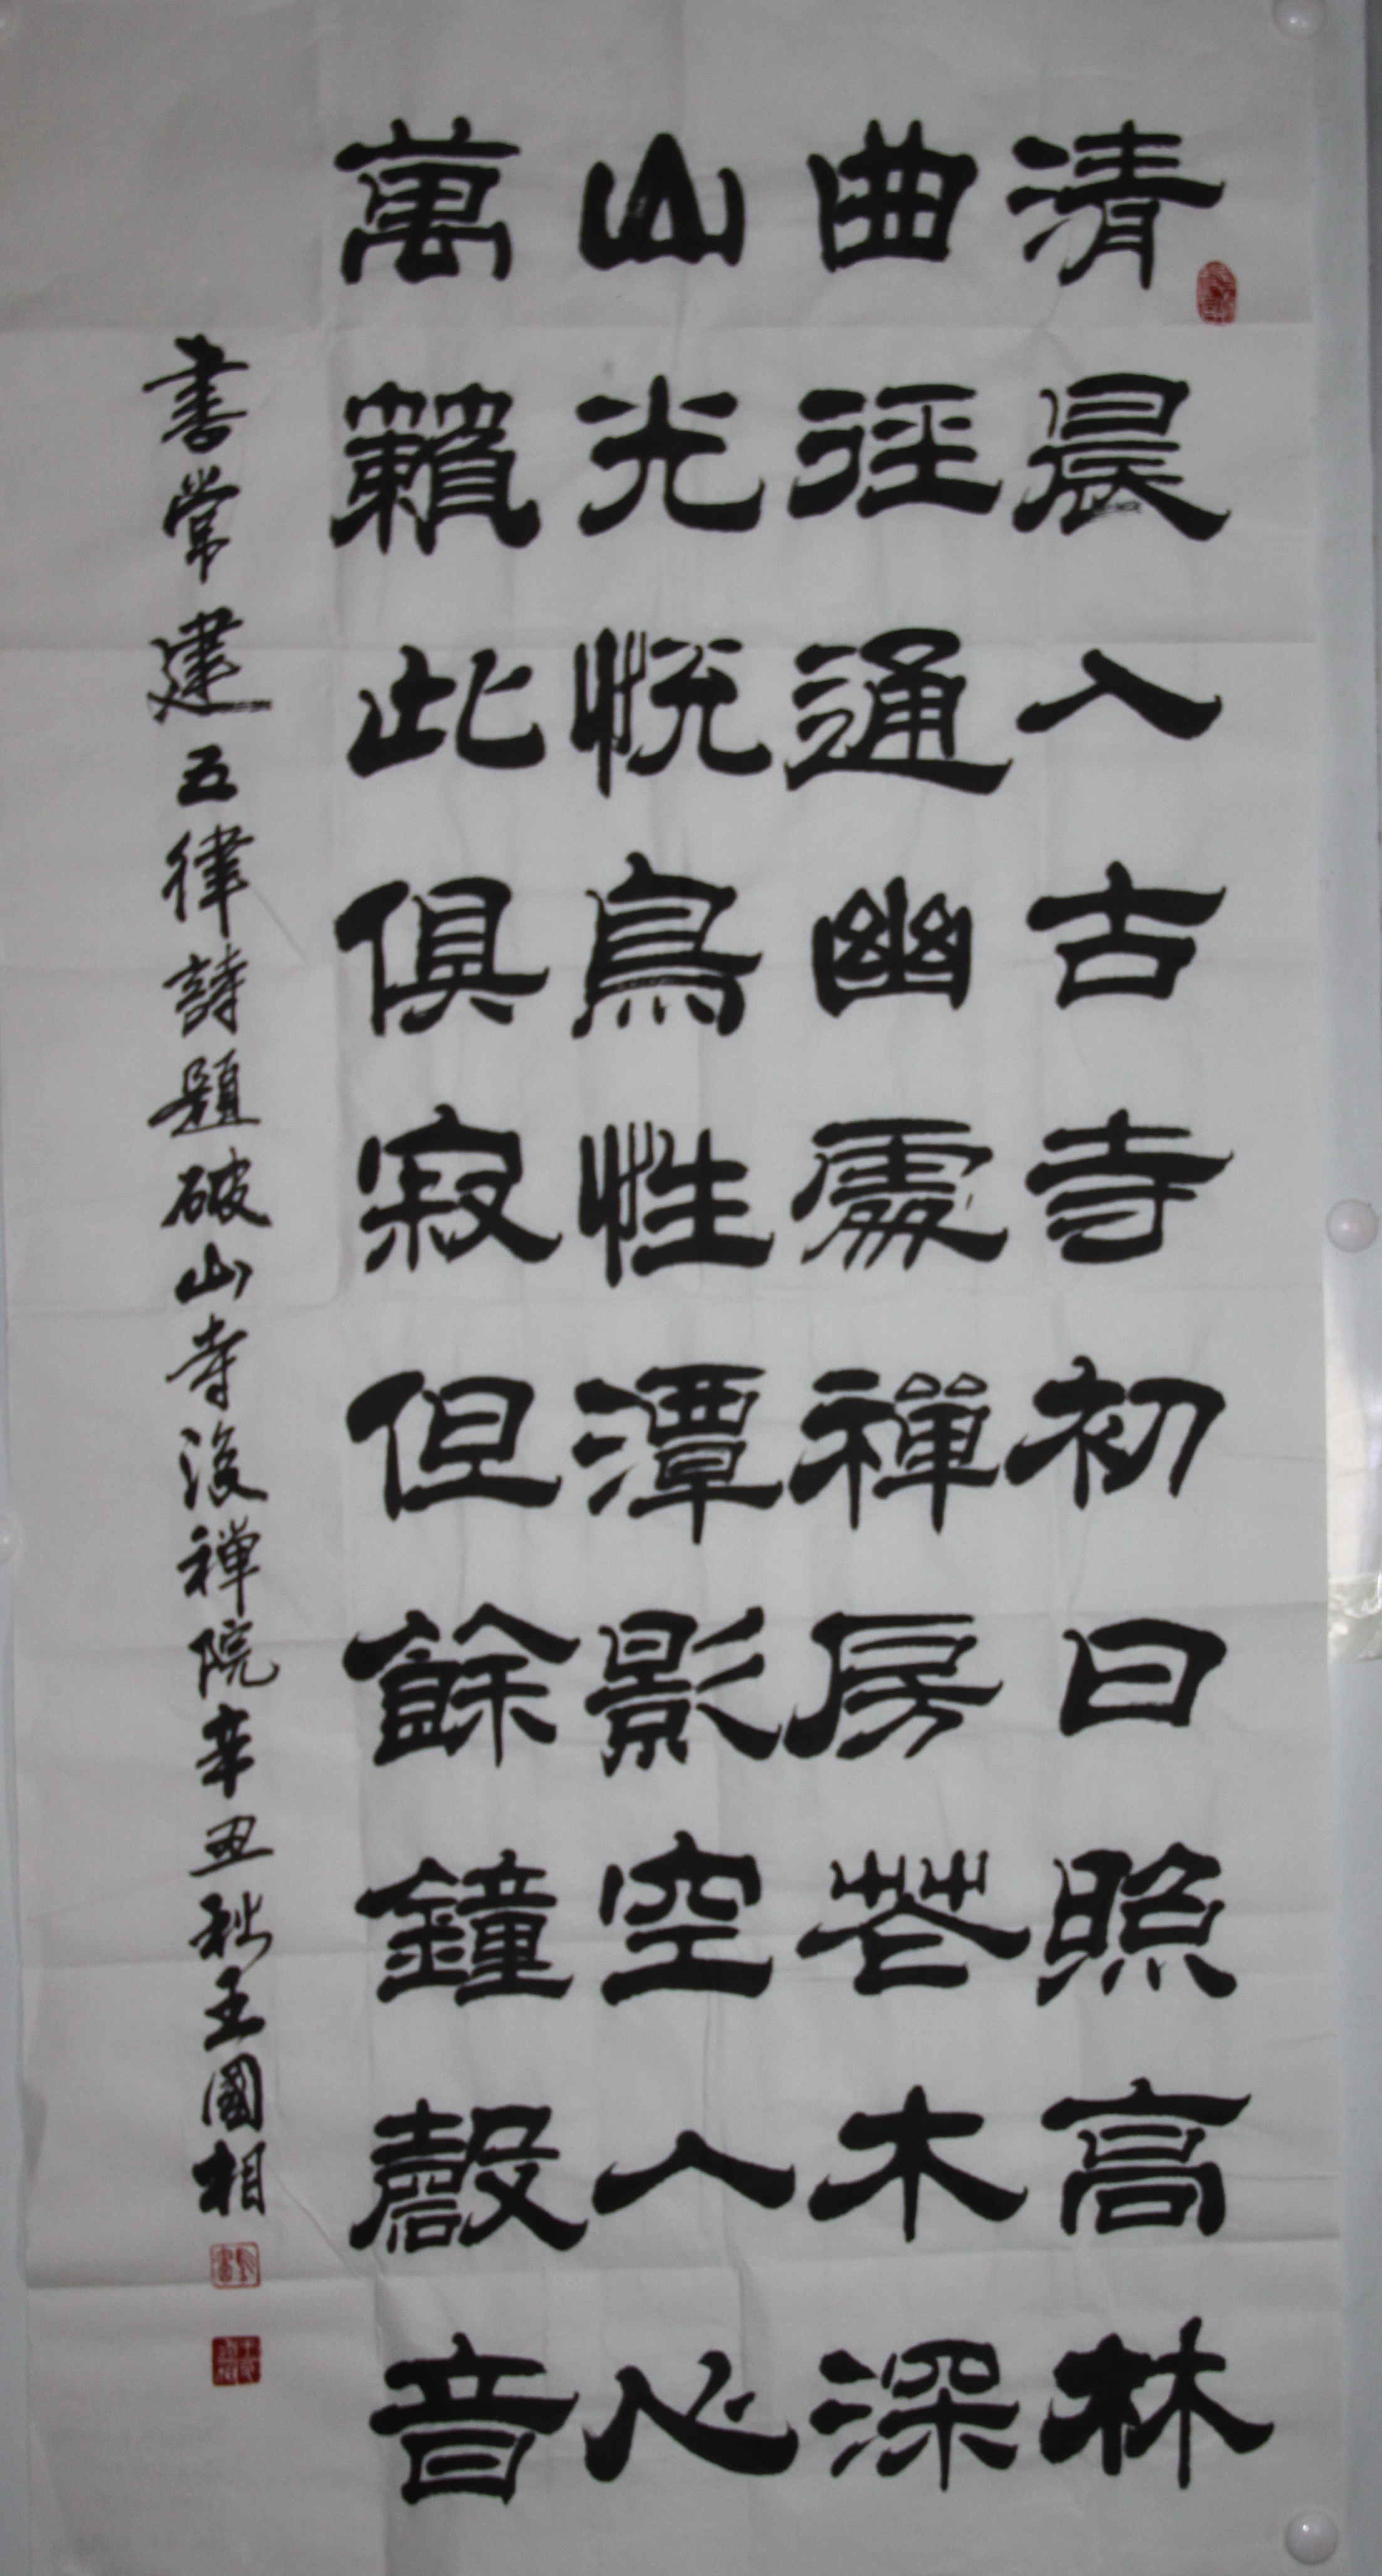 清晨入古寺初日照高林
曲径通幽處禪房花木深
山光悦鳥性潭影空人心
萬籟此俱寂但餘鐘磬音
書常建五律詩題破山寺後禅院辛丑秋王國相